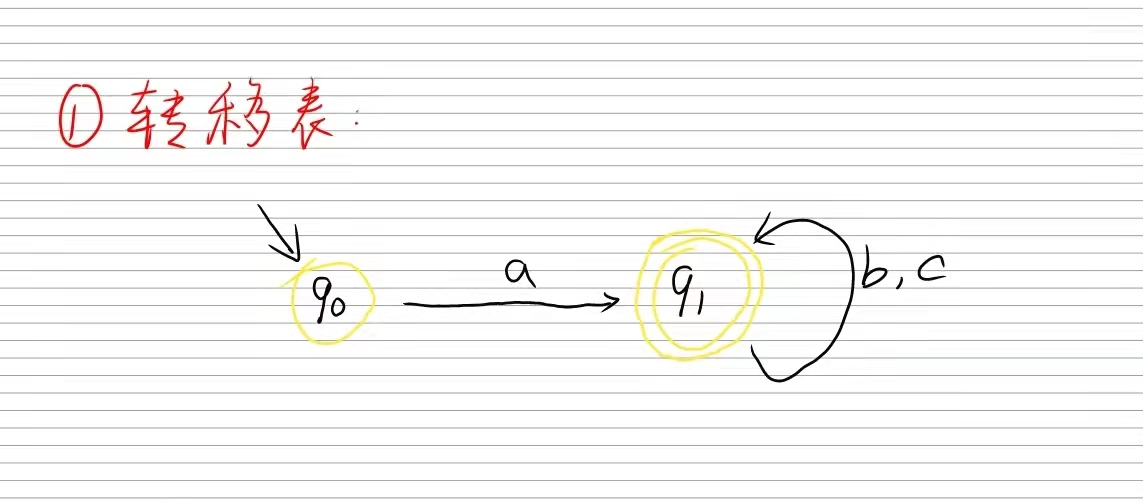 ① 转移表:
a
q₀ q₁ b, c